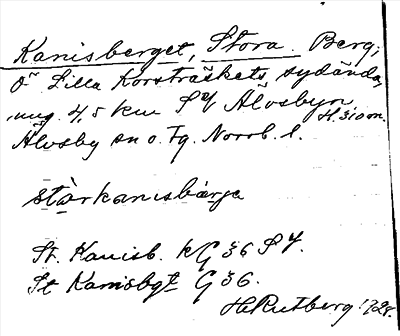 Kanisberget, Stora. Berg;
Ö Lilla Korsträskets sydända,
ung. 4,5 km S Y Älvsbyn
H. 310 m.
Älvsby sn o. Tg. Norrb. l.
stårkanisbärje
St. Kanisb. KG 36 S Y.
St Kanisbgt G 36.
H. Rutberg 1928.